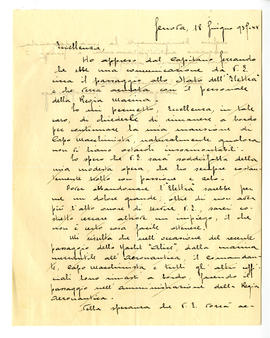 Genova, 18 Giugno 935-XIII
Eccellenza,
Ho appreso dal Capitano Ferrando
che ebbe una comunicazione da V.E.
circa il passaggio allo Stato dell'"Elettra"
e che verrà armata con il personale
della Regia Marina.
Io mi permetto, Eccellenza, in tale
caso, di chiederLe di rimanere a bordo
per continuare la mia mansione di
Capo Macchinista, naturalmente qualora
non vi siano ostacoli insormontabili.
Io spero che V.E. sarà soddisfatta della
mia modesta opera, che ho sempre costan-
temente svolto con passione e zelo.
Dover abbandonare l'Elettra sarebbe per
me un dolore grande, oltre di non aver
più l'alto onore di servire V.E. sarei co-
stretto cercare altrove un impiego, il che
non è certo cosa facile ottenere.
Mi risulta che nell'occasione del recente
passaggio dello Yacht dalla marina
mercantile all'Aeronautica, il Comandan-
te, Capo Macchinista e tutti gli altri uffi-
ciali sono rimasti a bordo, facendo il
passaggio nell'amministrazione della Regia
Aeronautica.
Nella speranza che V.E. vorrà ac-